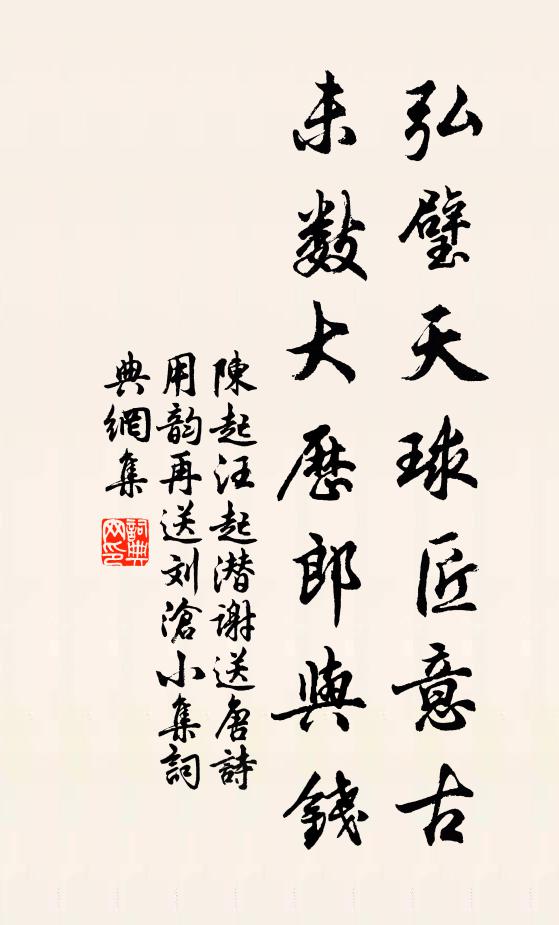 弘璧天球匠意古
未數大歷郎與錢
陳起汪起潜謝送唐詩
用韵再送刘滄小集詞
典網集
詞典網印